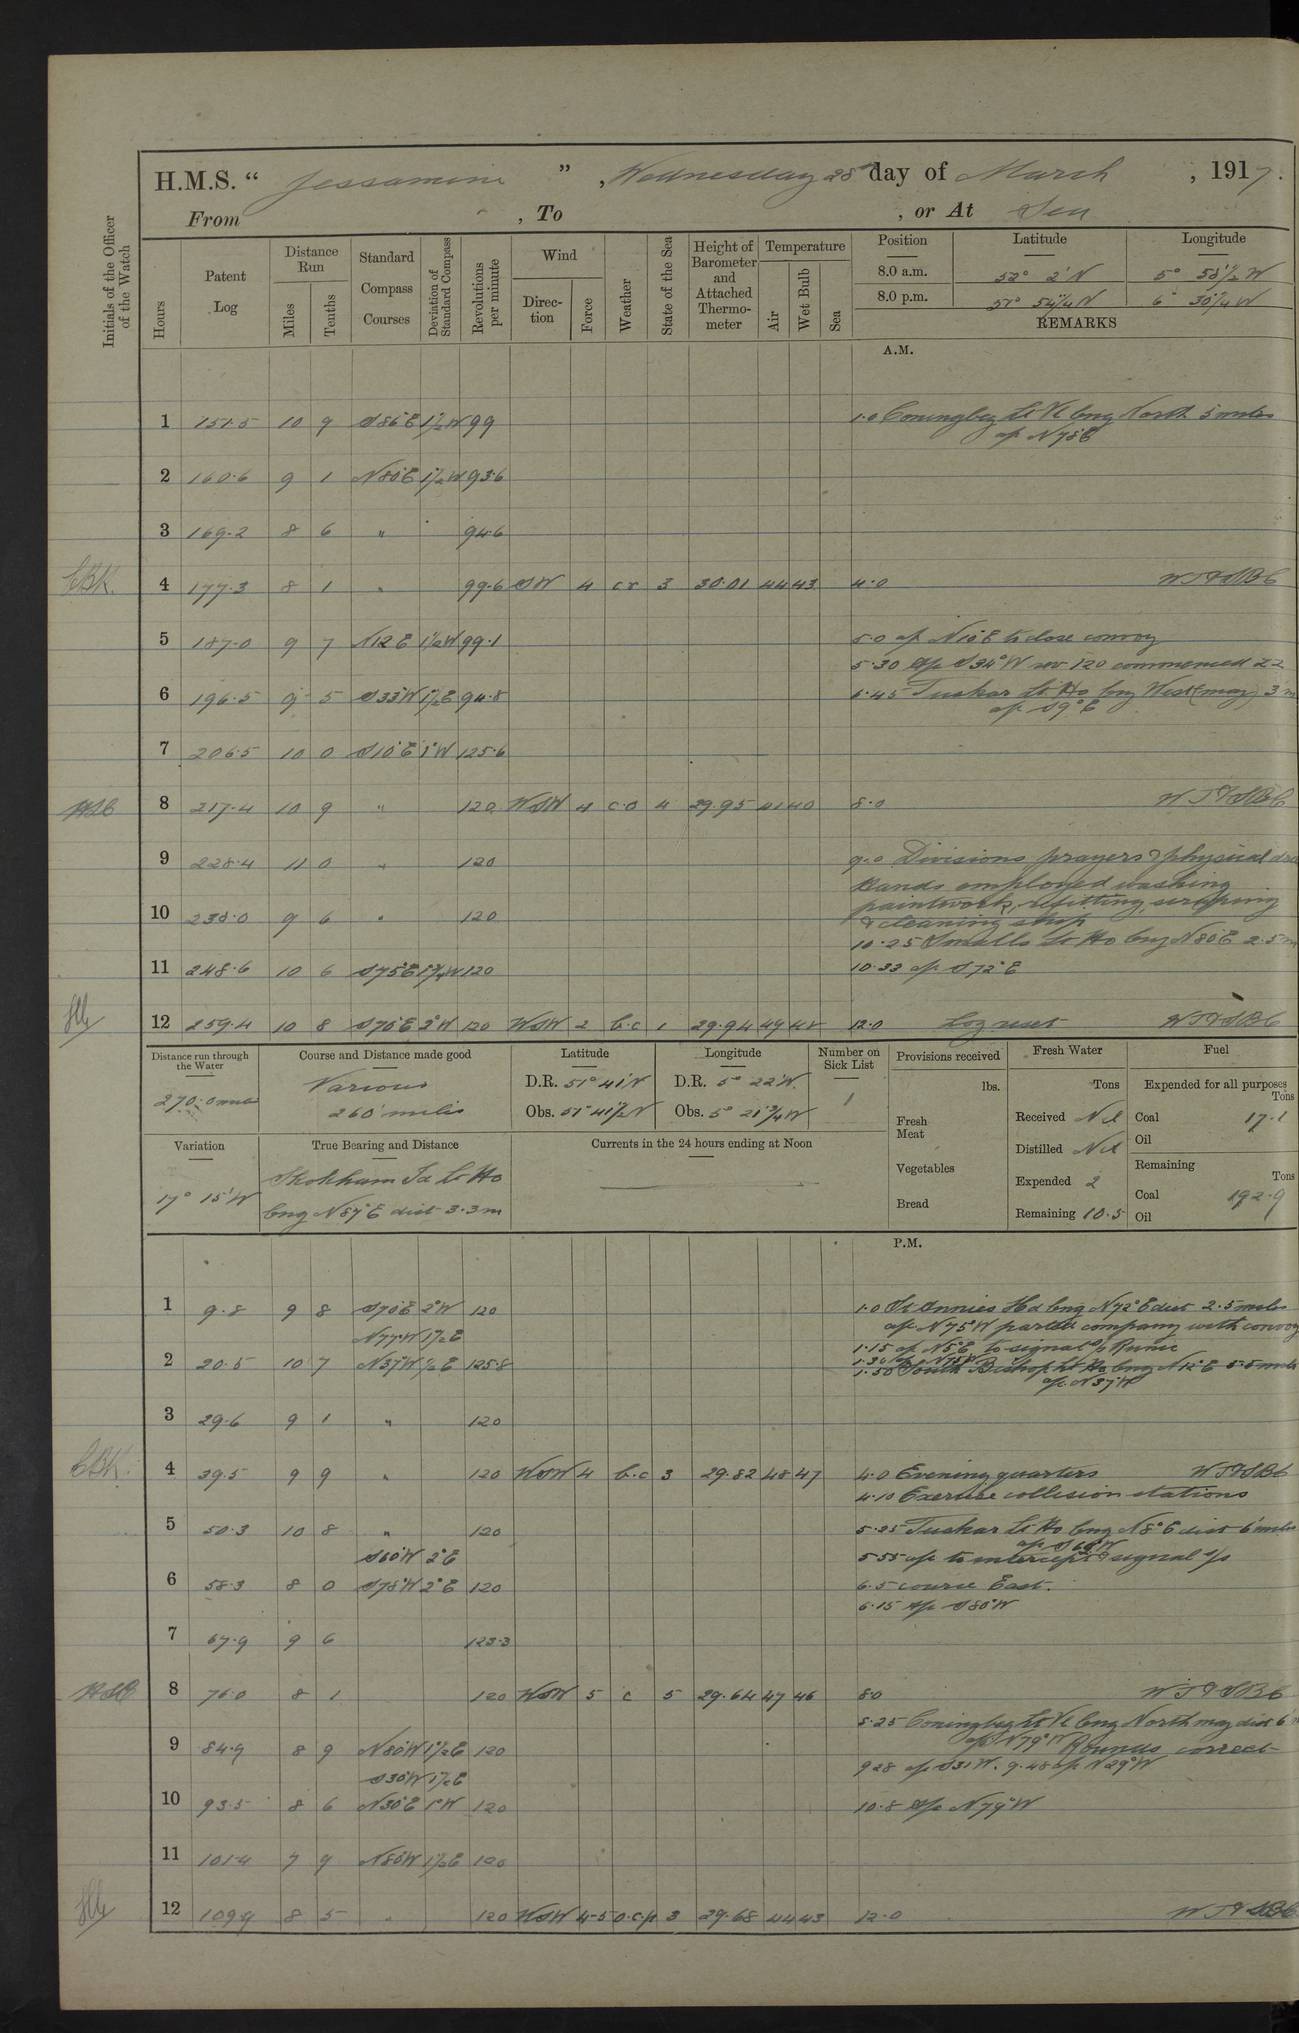 H.M.S. “ Jessamine ” , Wednesday 28th day of March , 1917.
From , To , or At Sea
Initials of the Officer of the Watch
Hours
Patent Log
Distance Run
Miles
Tenths
Standard Compass Courses
Deviation of Standard Compass
Revolutions per minute
Wind
Direc-tion
Force
Weather
State of the Sea
Height of Barometer and Attached Thermo-meter
Temperature
Air
Wet Bulb
Sea
Position Latitude Longitude
8.0 a.m. 52° 2' N 5° 58½' W
8.0 p.m. 51° 54¼ N 6° 30¼ W
REMARKS
A.M.
1 151.5 10 9 S86°E 1½W 99 1.0 Coningbeg Lt Vl brng North 5 miles
a/c N78°E
2 160.6 9 1 N80°E 1½W 93.6
3 169.2 8 6 " 94.6
CBK. 4 177.3 8 1 " 99.6 SW 4 cr 3 30.01 44 43 4.0 WT & SBC
5 187.0 9 7 N12E 1½W 99.1 5.0 a/c N10°E to close convoy
5.30 a/c S34°W rev 120 commenced ZZ
6 196.5 9 5 S33W 1½E 94.8 6.45 Tuskar Lt Ho brng West (mag) 3 m
a/c S9°E
7 206.5 10 0 S10°E 1°W 125.6
8 217.4 10 9 " 120 WSW 4 c.o 4 29.95 41 40 8.0 WT & SBC
9 228.4 11 0 " 120 9.0 Divisions prayers & physical
Hands employed washing
paintwork, refitting, scraping
10 238.0 9 6 " 120 & cleaning ship
10.25 Smalls Lt Ho brng N80°E 2.5 m
11 248.6 10 6 S75°E 1¾W 120 10.33 a/c S72°E
12 259.4 10 8 S70°E 2°W 120 WSW 2 b.c 1 29.94 49 48 12.0 Log reset WT & SBC
Distance run through the Water
270.0 miles
Course and Distance made good
Various
260 miles
Latitude
D.R. 51° 41' N
Obs. 51° 41½ N
Longitude
D.R. 5° 22' W.
Obs. 5° 21¾ W
Number on Sick List
1
Provisions received
lbs.
Fresh Meat
Vegetables
Bread
Fresh Water
Tons
Received Nil
Distilled Nil
Expended 2
Remaining 10.5
Fuel
Expended for all purposes
Tons
Coal 17.1
Oil
Remaining
Tons
Coal 192.9
Oil
Variation
17° 15' W
True Bearing and Distance
Skokham Id Lt Ho
brng N87°E dist 3.3 m
Currents in the 24 hours ending at Noon
P.M.
1 9.8 9 8 S70°E 2°W 120 1.0 St Annes Hd brng N72°E dist 2.5 miles
N77W 1½E a/c N75°W parted company with convoy
1.15 a/c N5°E to signal S/S Runic
2 20.5 10 7 N37W ½E 125.8 1.30 a/c N75W
1.50 South Bishop Lt Ho brng N12°E 5.5 miles
a/c N37°W
3 29.6 9 1 " 120
CBK. 4 39.5 9 9 " 120 WSW 4 b.c 3 29.82 48 47 4.0 Evening quarters WT & SBC
4.10 Exercise collision stations
5 50.3 10 8 " 120 5.25 Tuskar Lt Ho brng N8°E dist 6 miles
a/c S60°W
S60°W 2°E 5.55 a/c to intercept & signal S/S
6 58.3 8 0 S78°W 2°E 120 6.5 course East.
6.15 a/c S80°W
7 67.9 9 6 123.3
8 76.0 8 1 120 WSW 5 c 5 29.64 47 46 8.0 WT & SBC
8.25 Coningbeg Lt Vl brng North mag dist 6
a/c N79°W Rounds correct
9 84.9 8 9 N80W 1½E 120 9.28 a/c S31W. 9.48 a/c N29°W
S30W 1½E
10 93.5 8 6 N30°E 1°W 120 10.8 a/c N79°W
11 101.4 7 9 N80W 1½E 120
12 109.9 8 5 " 120 WSW 4-5 o.c.p 3 29.68 44 43 12.0 WT & SBC